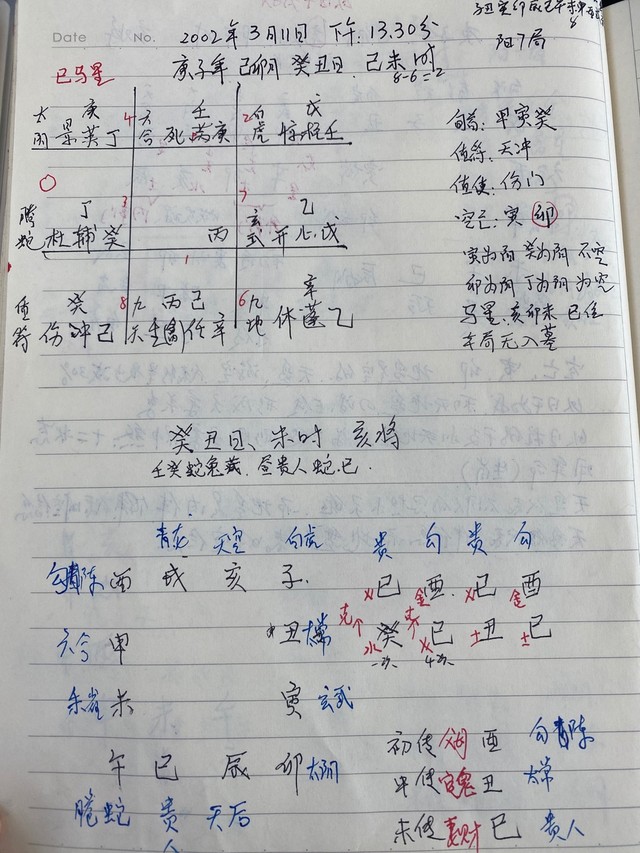 Date No. 2002年3月11日 下午:13.30分
阳7局
庚子年 己卯月 癸丑日、己未时
8-6=2
巳马星
太 庚 4 六 壬 2 白 戊
阴 景英丁 合 死芮庚 虎 惊柱壬
旬首:甲寅癸
值符:天冲
值使:伤门
空亡:寅 卯
腾 丁 3 丙 7 玄 乙
蛇 杜辅癸 1 武 开心戊
寅为阳 癸为阴 不空
卯为阴 丁为阴 为空
马星:亥卯未 巳位
值 癸 8 九 丙己 6 九 辛
符 伤冲己 天 生任辛 地 休蓬乙
癸丑日、未时 亥将
壬癸蛇兔藏、昼贵人蛇.巳.
青龙 天空 白虎 贵 勾 贵 勾
勾陈 酉 戌 亥 子. 火巳 金酉 火巳 金酉
六合 申 丑 太常 克 水癸 火巳 土丑 土巳
一次 4次
朱雀 未 寅 玄武
午 巳 辰 卯 太阴
腾蛇 贵人 天后
初传 父 酉 勾陈
中传 官鬼 丑 太常
末传 妻财 巳 贵人